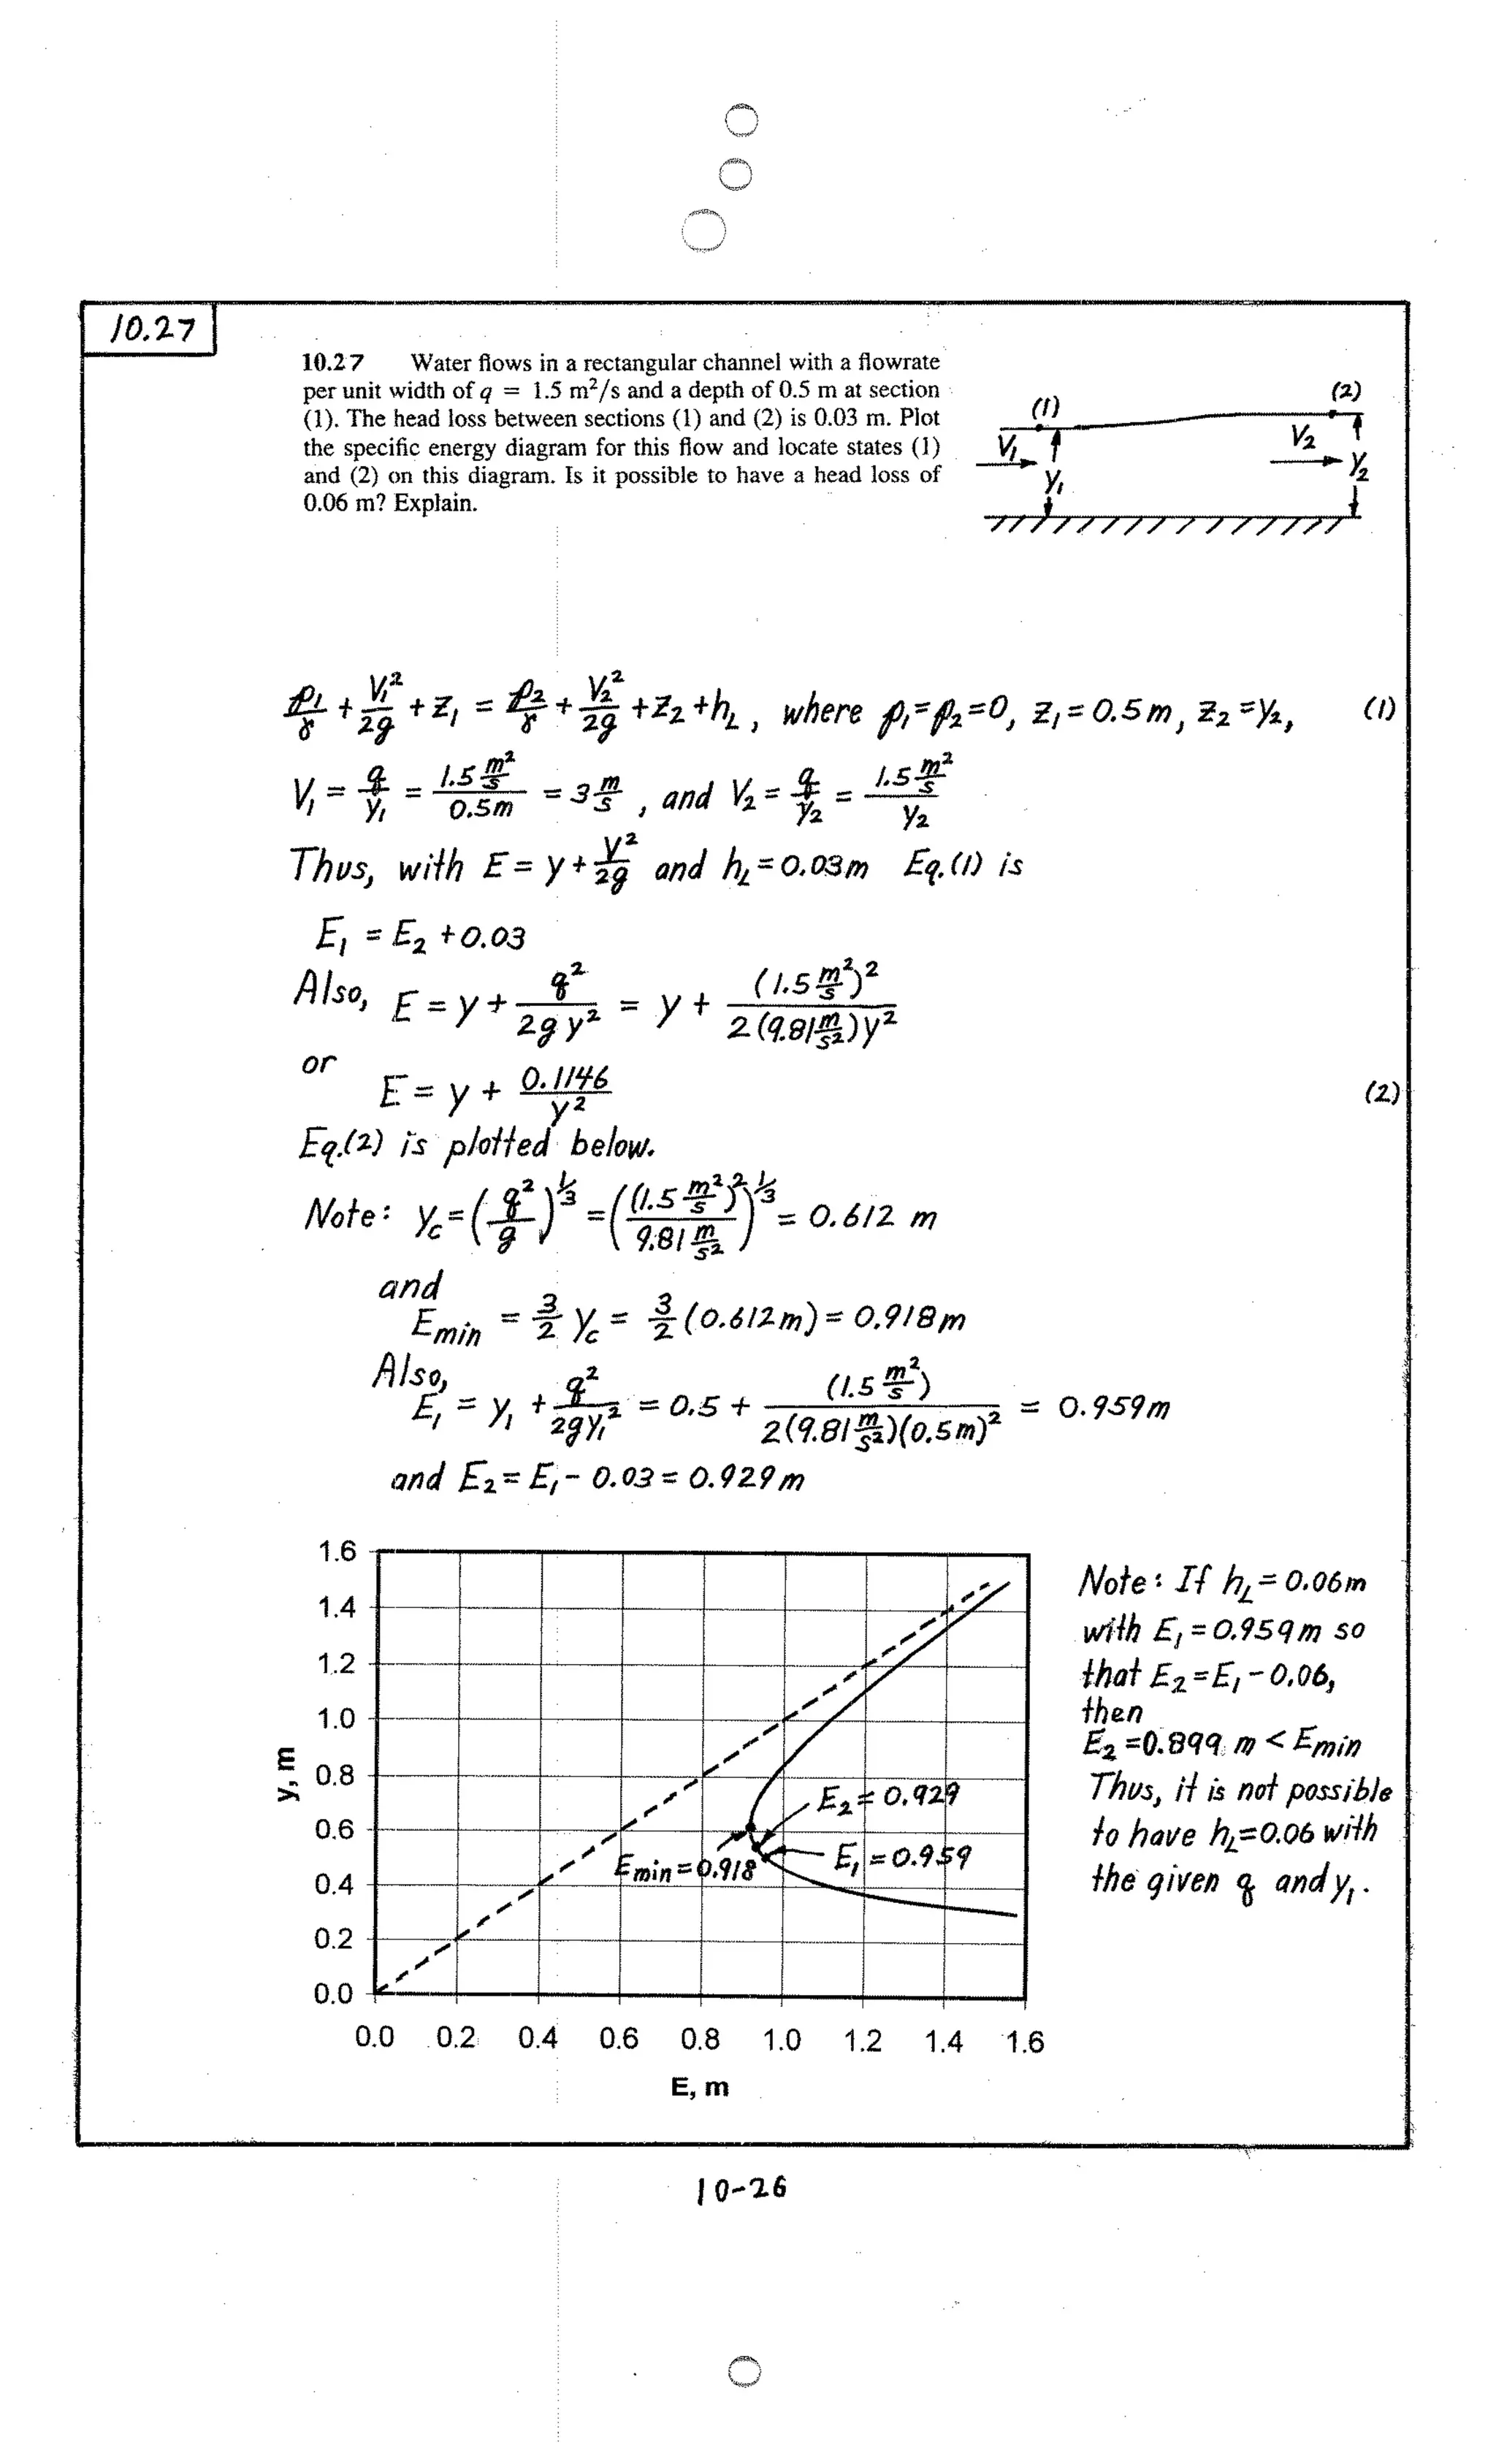 10.27
10.27 Water flows in a rectangular channel with a flowrate
per unit width of q = 1.5 m²/s and a depth of 0.5 m at section
(1). The head loss between sections (1) and (2) is 0.03 m. Plot
the specific energy diagram for this flow and locate states (1)
and (2) on this diagram. Is it possible to have a head loss of
0.06 m? Explain.
(1) (2)
V₁ V₂
y₁ y₂
p₁/γ + V₁²/2g + z₁ = p₂/γ + V₂²/2g + z₂ + h_L, where p₁=p₂=0, z₁=0.5m, z₂=y₂, (1)
V₁ = q/y₁ = 1.5 m²/s / 0.5m = 3 m/s, and V₂ = q/y₂ = 1.5 m²/s / y₂
Thus, with E = y + V²/2g and h_L = 0.03m Eq.(1) is
E₁ = E₂ + 0.03
Also, E = y + q²/2gy² = y + (1.5 m²/s)² / 2(9.81 m/s²)y²
or
E = y + 0.1146/y² (2)
Eq.(2) is plotted below.
Note: y_c = (q²/g)^⅓ = ((1.5 m²/s)²/9.81 m/s²)^⅓ = 0.612 m
and
E_min = 3/2 y_c = 3/2 (0.612m) = 0.918m
Also,
E₁ = y₁ + q²/2gy₁² = 0.5 + (1.5 m²/s) / 2(9.81 m/s²)(0.5m)² = 0.959m
and E₂ = E₁ - 0.03 = 0.929m
1.6
1.4
1.2
1.0
0.8
0.6
0.4
0.2
0.0
y, m
E₂ = 0.929
E₁ = 0.959
E_min = 0.918
0.0 0.2 0.4 0.6 0.8 1.0 1.2 1.4 1.6
E, m
Note: If h_L = 0.06m
with E₁ = 0.959m so
that E₂ = E₁ - 0.06,
then
E₂ = 0.899 m < E_min
Thus, it is not possible
to have h_L = 0.06 with
the given q and y₁.
10-26